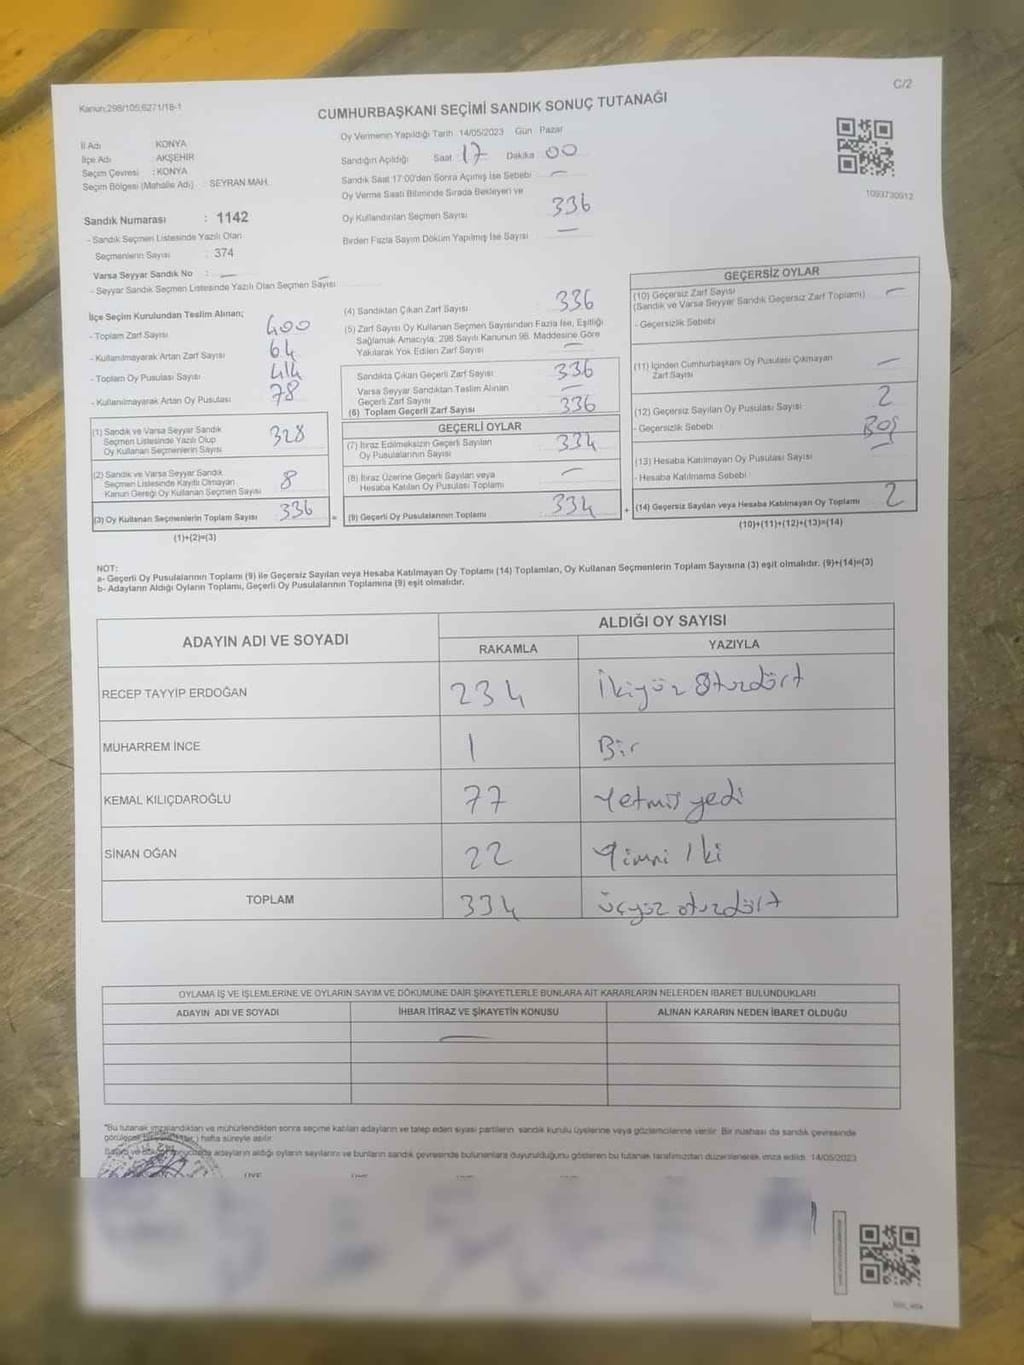 Kanun:298/105,6271/18-1
C/2
CUMHURBAŞKANI SEÇİMİ SANDIK SONUÇ TUTANAĞI
İl Adı : KONYA
İlçe Adı : AKŞEHİR
Seçim Çevresi : KONYA
Seçim Bölgesi (Mahalle Adı) : SEYRAN MAH.
Sandık Numarası : 1142
- Sandık Seçmen Listesinde Yazılı Olan
Seçmenlerin Sayısı : 374
Varsa Seyyar Sandık No : —
- Seyyar Sandık Seçmen Listesinde Yazılı Olan Seçmen Sayısı —
Oy Vermenin Yapıldığı Tarih 14/05/2023 Gün Pazar
Sandığın Açıldığı Saat : 17 Dakika 00
Sandık Saat 17:00'den Sonra Açılmış İse Sebebi —
Oy Verme Saati Bitiminde Sırada Bekleyen ve
Oy Kullandırılan Seçmen Sayısı 336
Birden Fazla Sayım Döküm Yapılmış İse Sayısı —
1093730912
İlçe Seçim Kurulundan Teslim Alınan;
- Toplam Zarf Sayısı 400
- Kullanılmayarak Artan Zarf Sayısı 64
- Toplam Oy Pusulası Sayısı 414
- Kullanılmayarak Artan Oy Pusulası 78
(1) Sandık ve Varsa Seyyar Sandık
Seçmen Listesinde Yazılı Olup
Oy Kullanan Seçmenlerin Sayısı 328
(2) Sandık ve Varsa Seyyar Sandık
Seçmen Listesinde Kayıtlı Olmayan
Kanun Gereği Oy Kullanan Seçmen Sayısı 8
(3) Oy Kullanan Seçmenlerin Toplam Sayısı 336 =
(1)+(2)=(3)
(4) Sandıktan Çıkan Zarf Sayısı 336
(5) Zarf Sayısı Oy Kullanan Seçmen Sayısından Fazla İse, Eşitliği
Sağlamak Amacıyla; 298 Sayılı Kanunun 98. Maddesine Göre
Yakılarak Yok Edilen Zarf Sayısı —
Sandıkta Çıkan Geçerli Zarf Sayısı 336
Varsa Seyyar Sandıktan Teslim Alınan
Geçerli Zarf Sayısı —
(6) Toplam Geçerli Zarf Sayısı 336
GEÇERLİ OYLAR
(7) İtiraz Edilmeksizin Geçerli Sayılan
Oy Pusulalarının Sayısı 334
(8) İtiraz Üzerine Geçerli Sayılan veya
Hesaba Katılan Oy Pusulası Toplamı —
(9) Geçerli Oy Pusulalarının Toplamı 334 +
GEÇERSİZ OYLAR
(10) Geçersiz Zarf Sayısı
(Sandık ve Varsa Seyyar Sandık Geçersiz Zarf Toplamı) —
- Geçersizlik Sebebi
(11) İçinden Cumhurbaşkanı Oy Pusulası Çıkmayan
Zarf Sayısı —
(12) Geçersiz Sayılan Oy Pusulası Sayısı 2
- Geçersizlik Sebebi Boş
(13) Hesaba Katılmayan Oy Pusulası Sayısı —
- Hesaba Katılmama Sebebi
(14) Geçersiz Sayılan veya Hesaba Katılmayan Oy Toplamı 2
(10)+(11)+(12)+(13)=(14)
NOT:
a- Geçerli Oy Pusulalarının Toplamı (9) ile Geçersiz Sayılan veya Hesaba Katılmayan Oy Toplamı (14) Toplamları, Oy Kullanan Seçmenlerin Toplam Sayısına (3) eşit olmalıdır. (9)+(14)=(3)
b- Adayların Aldığı Oyların Toplamı, Geçerli Oy Pusulalarının Toplamına (9) eşit olmalıdır.
ADAYIN ADI VE SOYADI ALDIĞI OY SAYISI
RAKAMLA YAZIYLA
RECEP TAYYİP ERDOĞAN 234 İkiyüz Otuzdört
MUHARREM İNCE 1 Bir
KEMAL KILIÇDAROĞLU 77 Yetmiş yedi
SİNAN OĞAN 22 Yirmi İki
TOPLAM 334 üçyüz otuzdört
OYLAMA İŞ VE İŞLEMLERİNE VE OYLARIN SAYIM VE DÖKÜMÜNE DAİR ŞİKAYETLERLE BUNLARA AİT KARARLARIN NELERDEN İBARET BULUNDUKLARI
ADAYIN ADI VE SOYADI İHBAR İTİRAZ VE ŞİKAYETİN KONUSU ALINAN KARARIN NEDEN İBARET OLDUĞU
—
"Bu tutanak imzalandıktan ve mühürlendikten sonra seçime katılan adayların ve talep eden siyasi partilerin sandık kurulu üyelerine veya gözlemcilerine verilir. Bir nüshası da sandık çevresinde
hafta süreyle asılır.
adayların aldığı oyların sayılarını ve bunların sandık çevresinde bulunanlara duyurulduğunu gösteren bu tutanak tarafımızdan düzenlenerek imza edildi. 14/05/2023